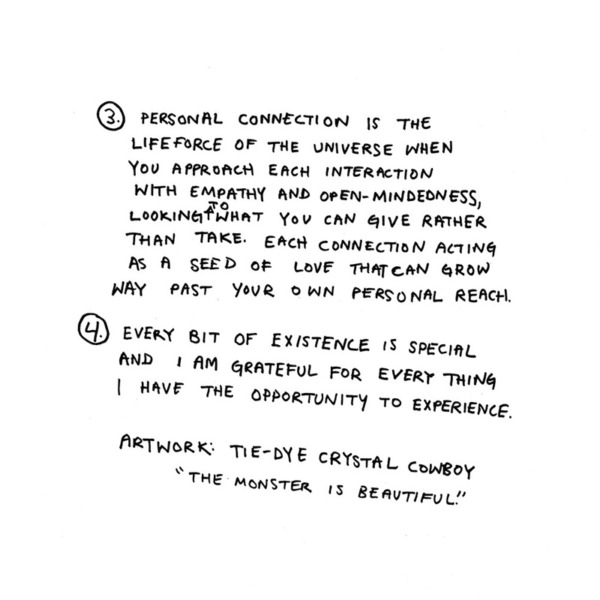 3. PERSONAL CONNECTION IS THE
LIFEFORCE OF THE UNIVERSE WHEN
YOU APPROACH EACH INTERACTION
WITH EMPATHY AND OPEN-MINDEDNESS,
LOOKING TO WHAT YOU CAN GIVE RATHER
THAN TAKE. EACH CONNECTION ACTING
AS A SEED OF LOVE THAT CAN GROW
WAY PAST YOUR OWN PERSONAL REACH.
4. EVERY BIT OF EXISTENCE IS SPECIAL
AND I AM GRATEFUL FOR EVERY THING
I HAVE THE OPPORTUNITY TO EXPERIENCE.
ARTWORK: TIE-DYE CRYSTAL COWBOY
"THE MONSTER IS BEAUTIFUL!"